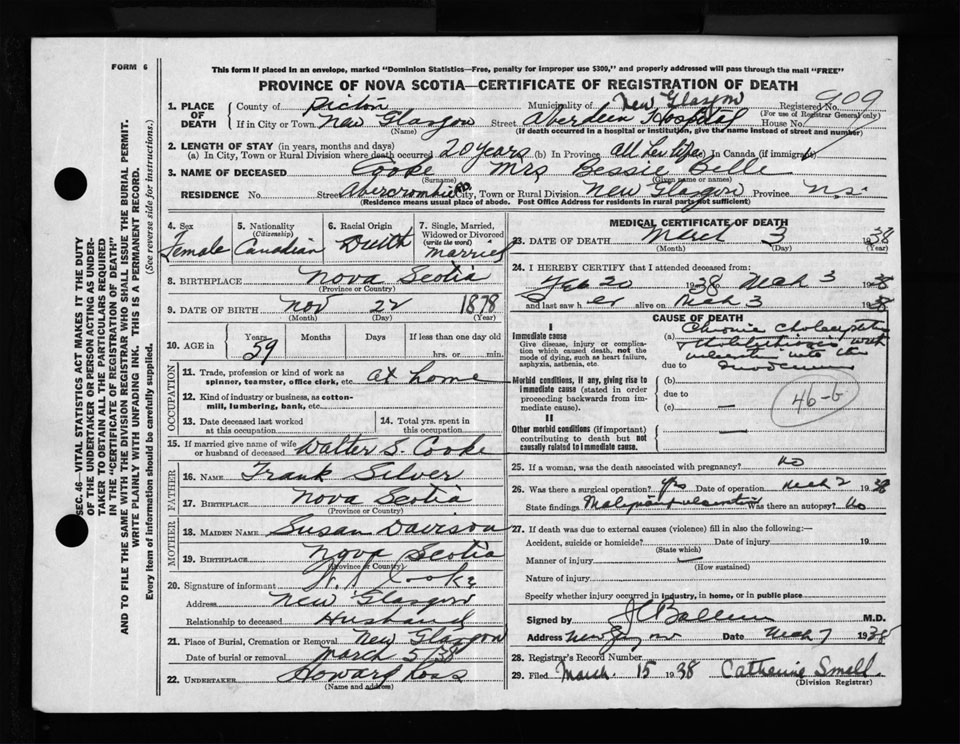 FORM 6
This form if placed in an envelope, marked "Dominion Statistics—Free, penalty for improper use $300," and properly addressed will pass through the mail "FREE"
PROVINCE OF NOVA SCOTIA—CERTIFICATE OF REGISTRATION OF DEATH
1. PLACE OF DEATH County of Pictou Municipality of New Glasgow Registered No. 909
(For use of Registrar General only)
If in City or Town New Glasgow Street Aberdeen Hospital House No.
(Name) (If death occurred in a hospital or institution, give the name instead of street and number)
2. LENGTH OF STAY (in years, months and days)
(a) In City, Town or Rural Division where death occurred 20 years (b) In Province All her life In Canada (if immigrant)
3. NAME OF DECEASED Cooke Mrs Bessie Belle
(Surname) (Given name or names)
RESIDENCE No. Street Abercrombie RD. City, Town or Rural Division New Glasgow Province NS.
(Residence means usual place of abode. Post Office Address for residents in rural parts not sufficient)
4. Sex Female
5. Nationality (Citizenship) Canadian
6. Racial Origin
7. Single, Married, Widowed or Divorced (write the word) Married
8. BIRTHPLACE Nova Scotia
(Province or Country)
9. DATE OF BIRTH Nov 22 1878
(Month) (Day) (Year)
10. AGE in Years 59 Months Days If less than one day old
hrs. or min.
OCCUPATION
11. Trade, profession or kind of work as spinner, teamster, office clerk, etc. at home
12. Kind of industry or business, as cotton-mill, lumbering, bank, etc.
13. Date deceased last worked at this occupation
14. Total yrs. spent in this occupation
15. If married give name of wife or husband of deceased Walter S. Cooke
FATHER
16. NAME Frank Silver
17. BIRTHPLACE Nova Scotia
(Province or Country)
MOTHER
18. MAIDEN NAME Susan Davison
19. BIRTHPLACE Nova Scotia
(Province or Country)
20. Signature of informant Cooke
Address New Glasgow
Relationship to deceased Husband
21. Place of Burial, Cremation or Removal New Glasgow
Date of burial or removal March 5/38
22. UNDERTAKER Howard Ross
(Name and address)
MEDICAL CERTIFICATE OF DEATH
23. DATE OF DEATH March 3 1938
(Month) (Day) (Year)
24. I HEREBY CERTIFY that I attended deceased from:
Feb 20 1938 to Mch 3 1938
and last saw her alive on Mch 3 1938
CAUSE OF DEATH
I
Immediate cause
Give disease, injury or complication which caused death, not the mode of dying, such as heart failure, asphyxia, asthenia, etc.
(a) Chronic
with
due to
Morbid conditions, if any, giving rise to immediate cause (stated in order proceeding backwards from immediate cause).
(b)
due to
(c) —
46-b
II
Other morbid conditions (if important) contributing to death but not causally related to immediate cause. —
25. If a woman, was the death associated with pregnancy? No
26. Was there a surgical operation? Yes Date of operation Mch 2 1938
State findings Was there an autopsy? No
27. If death was due to external causes (violence) fill in also the following:—
Accident, suicide or homicide? Date of injury 19
(State which)
Manner of injury
(How sustained)
Nature of injury
Specify whether injury occurred in industry, in home, or in public place
Signed by M.D.
Address New Glasgow Date Mch 7 1938
28. Registrar's Record Number
29. Filed March 15 1938 Catherine Small
(Division Registrar)
SEC. 46—VITAL STATISTICS ACT MAKES IT THE DUTY
OF THE UNDERTAKER OR PERSON ACTING AS UNDER-
TAKER TO OBTAIN ALL THE PARTICULARS REQUIRED
IN THE "CERTIFICATE OF REGISTRATION OF DEATH"
AND TO FILE THE SAME WITH THE DIVISION REGISTRAR WHO SHALL ISSUE THE BURIAL PERMIT.
WRITE PLAINLY WITH UNFADING INK. THIS IS A PERMANENT RECORD.
Every item of information should be carefully supplied. (See reverse side for instructions.)